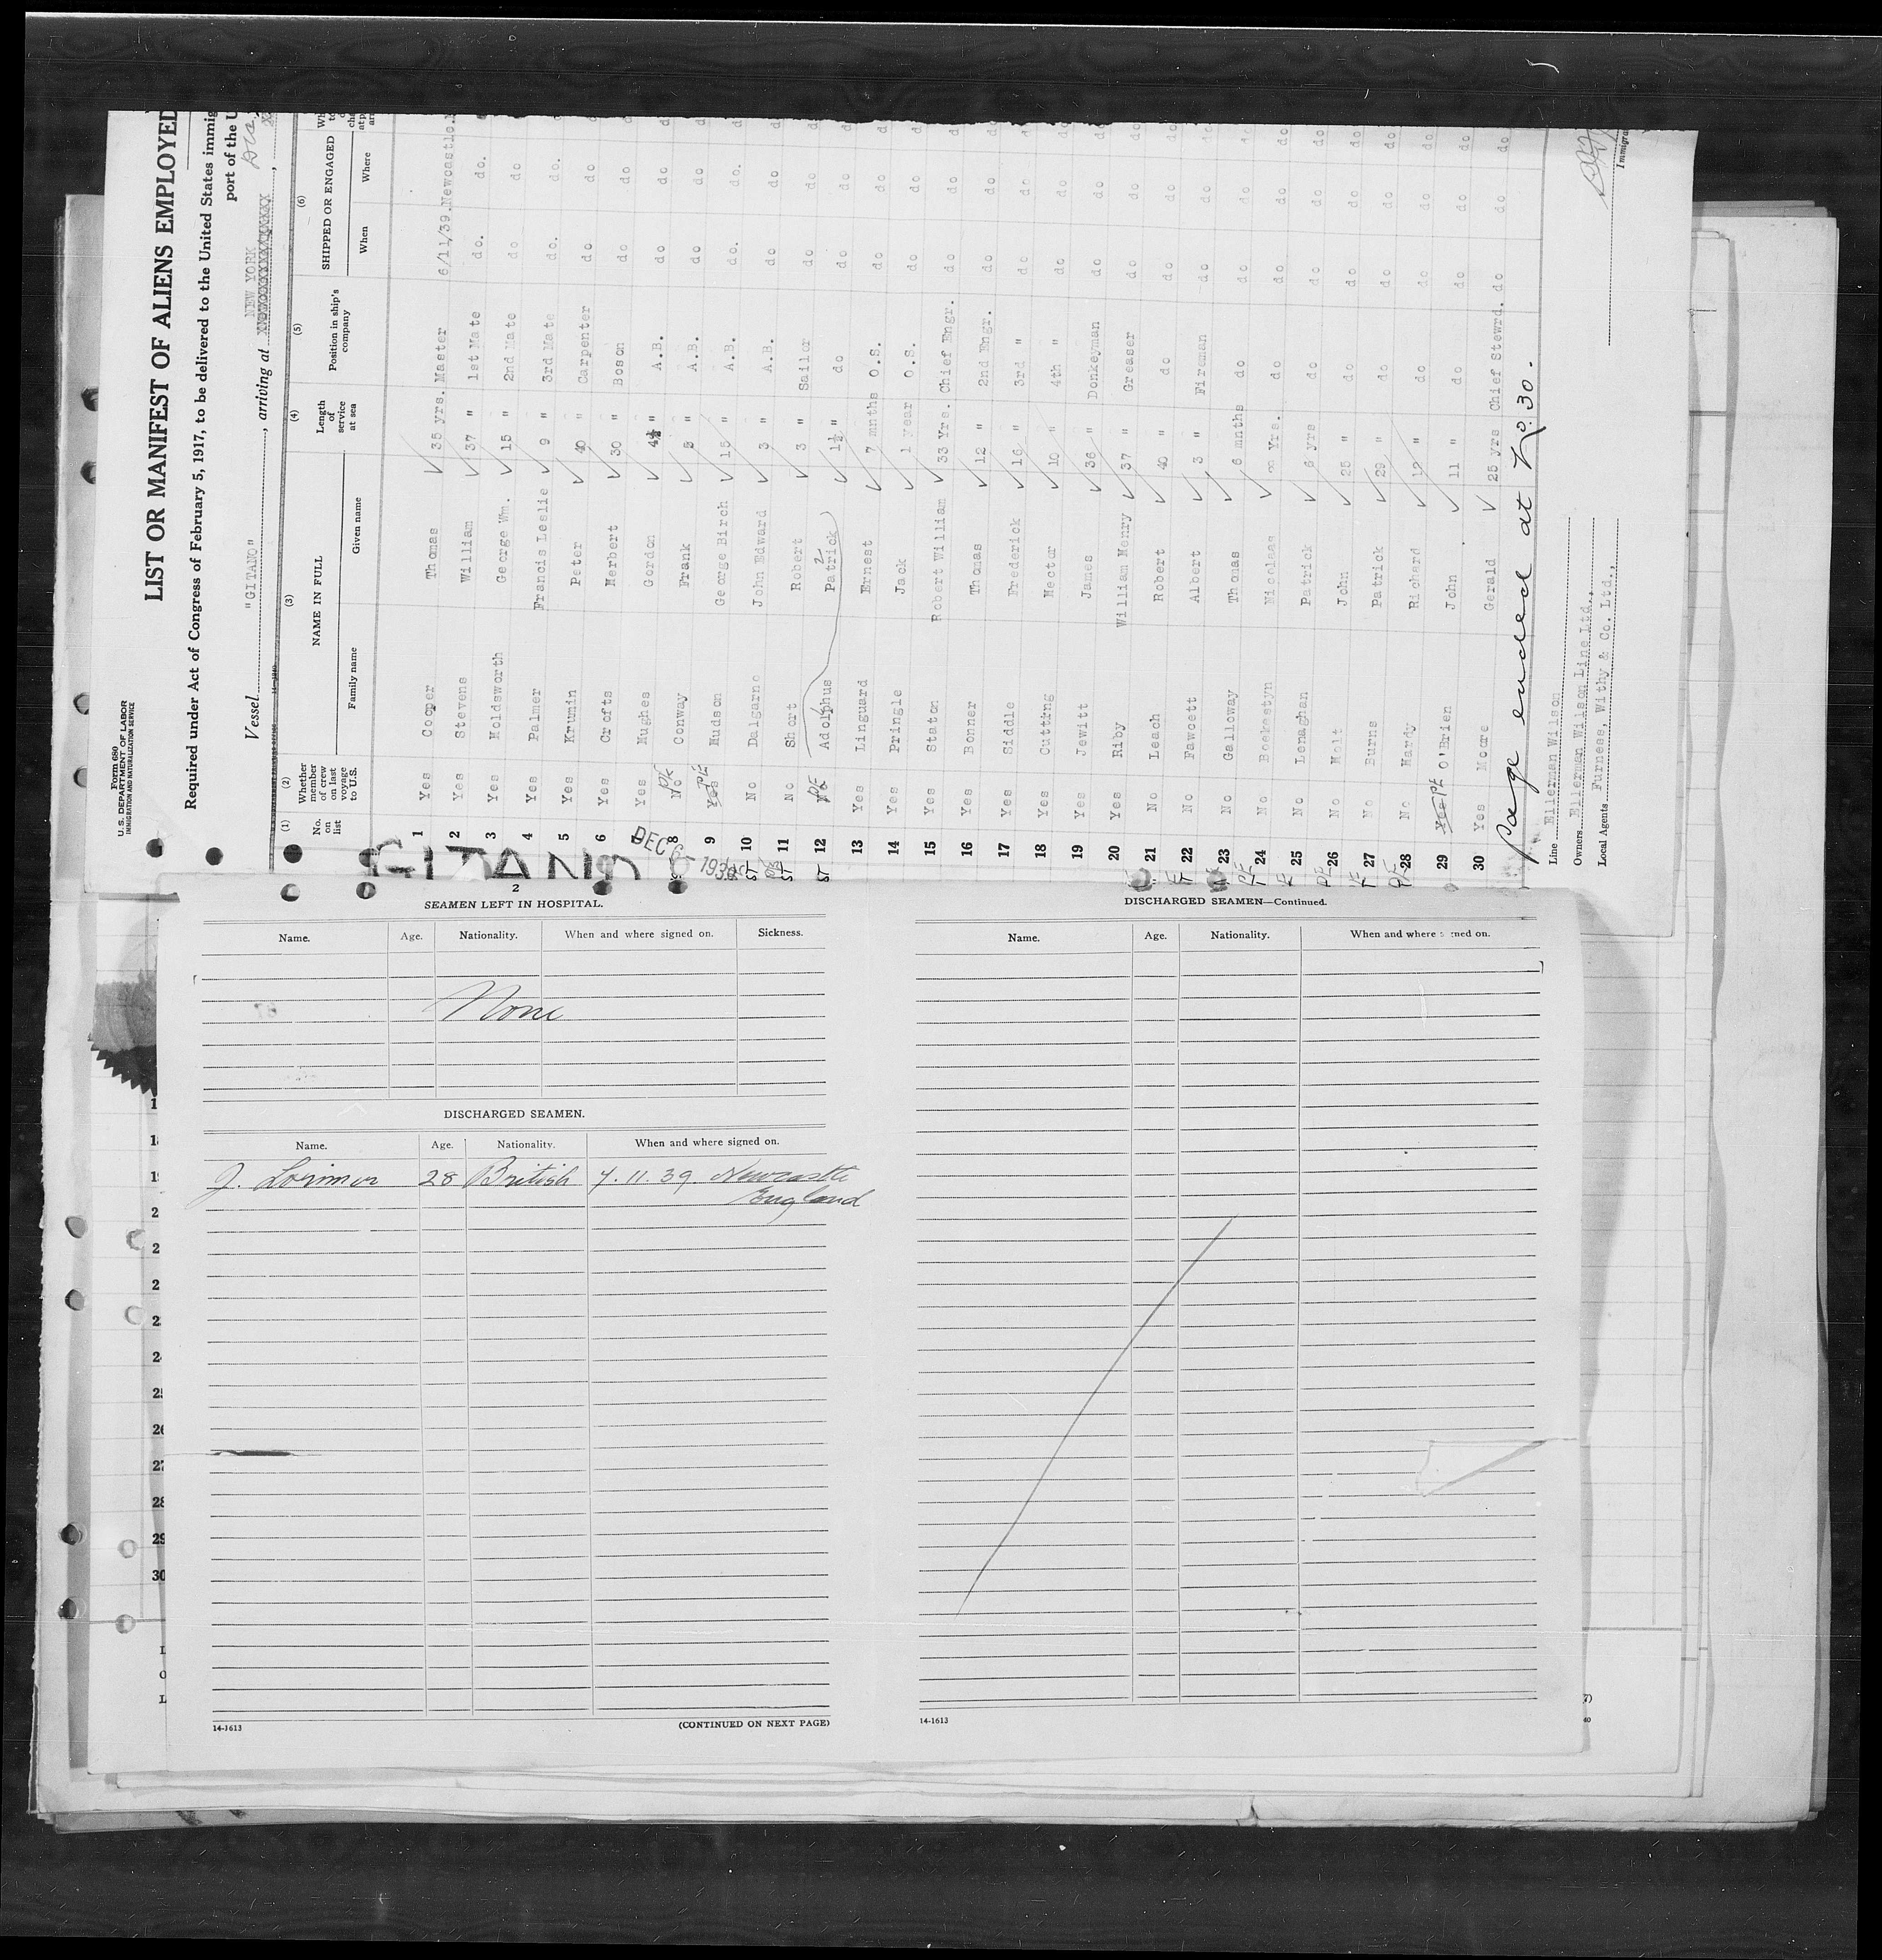 Form 680
U. S. DEPARTMENT OF LABOR
IMMIGRATION AND NATURALIZATION SERVICE
LIST OR MANIFEST OF ALIENS EMPLOYED
Required under Act of Congress of February 5, 1917, to be delivered to the United States immig
port of the U
Vessel "GITANO", arriving at NEW YORK
(1) (2) (3) (4) (5) (6)
No. on list
Whether member of crew on last voyage to U.S.
NAME IN FULL
Family name Given name
Length of service at sea
Position in ship's company
SHIPPED OR ENGAGED
When Where
1 Yes Cooper Thomas 35 yrs. Master 6/11/39. Newcastle.
2 Yes Stevens William 37 " 1st Mate do. do.
3 Yes Holdsworth George Wm. 15 " 2nd Mate do do
4 Yes Palmer Francis Leslie 9 " 3rd Mate do. do.
5 Yes Krumin Peter 40 " Carpenter do do
6 Yes Crofts Herbert 30 " Boson do do
7 Yes Hughes Gordon 4½ " A.B. do do
8 No Conway Frank 5 " A.B. do do
9 Yes Hudson George Birch 15 " A.B. do. do.
10 No Dalgarno John Edward 3 " A.B. do do
11 No Short Robert 3 " Sailor do do
12 No Adolphus Patrick 1½ " do do do
13 Yes Linguard Ernest 7 mnths O.S. do do
14 Yes Pringle Jack 1 year O.S. do do
15 Yes Staton Robert William 33 Yrs. Chief Engr. do do
16 Yes Bonner Thomas 12 " 2nd Engr. do do
17 Yes Siddle Frederick 16 " 3rd " do do
18 Yes Cutting Hector 10 " 4th " do do
19 Yes Jewitt James 36 " Donkeyman do do
20 Yes Riby William Henry 37 " Greaser do do
21 No Leach Robert 40 " do do do
22 No Fawcett Albert 3 " Fireman do do
23 No Galloway Thomas 6 mnths do do do
24 No Boekestyn Nicolaas Yrs. do do do
25 No Lenaghan Patrick 6 yrs do do do
26 No Holt John 25 " do do do
27 No Burns Patrick 29 " do do do
28 No Hardy Richard 12 " do do do
29 Yes O'Brien John 11 " do do do
30 Yes Moore Gerald 25 yrs Chief Stewrd. do do
Page ended at No. 30.
Line Ellerman Wilson
Owners Ellerman Wilson Line Ltd.,
Local Agents Furness, Withy & Co. Ltd.,
GITANO
DEC 6 - 193
2
SEAMEN LEFT IN HOSPITAL.
Name. Age. Nationality. When and where signed on. Sickness.
None
DISCHARGED SEAMEN.
Name. Age. Nationality. When and where signed on.
J. Lorimer 28 British 7.11.39 Newcastle
England
14-1613 (CONTINUED ON NEXT PAGE)
DISCHARGED SEAMEN—Continued.
Name. Age. Nationality. When and where ned on.
14-1613
26
27
28
29
30